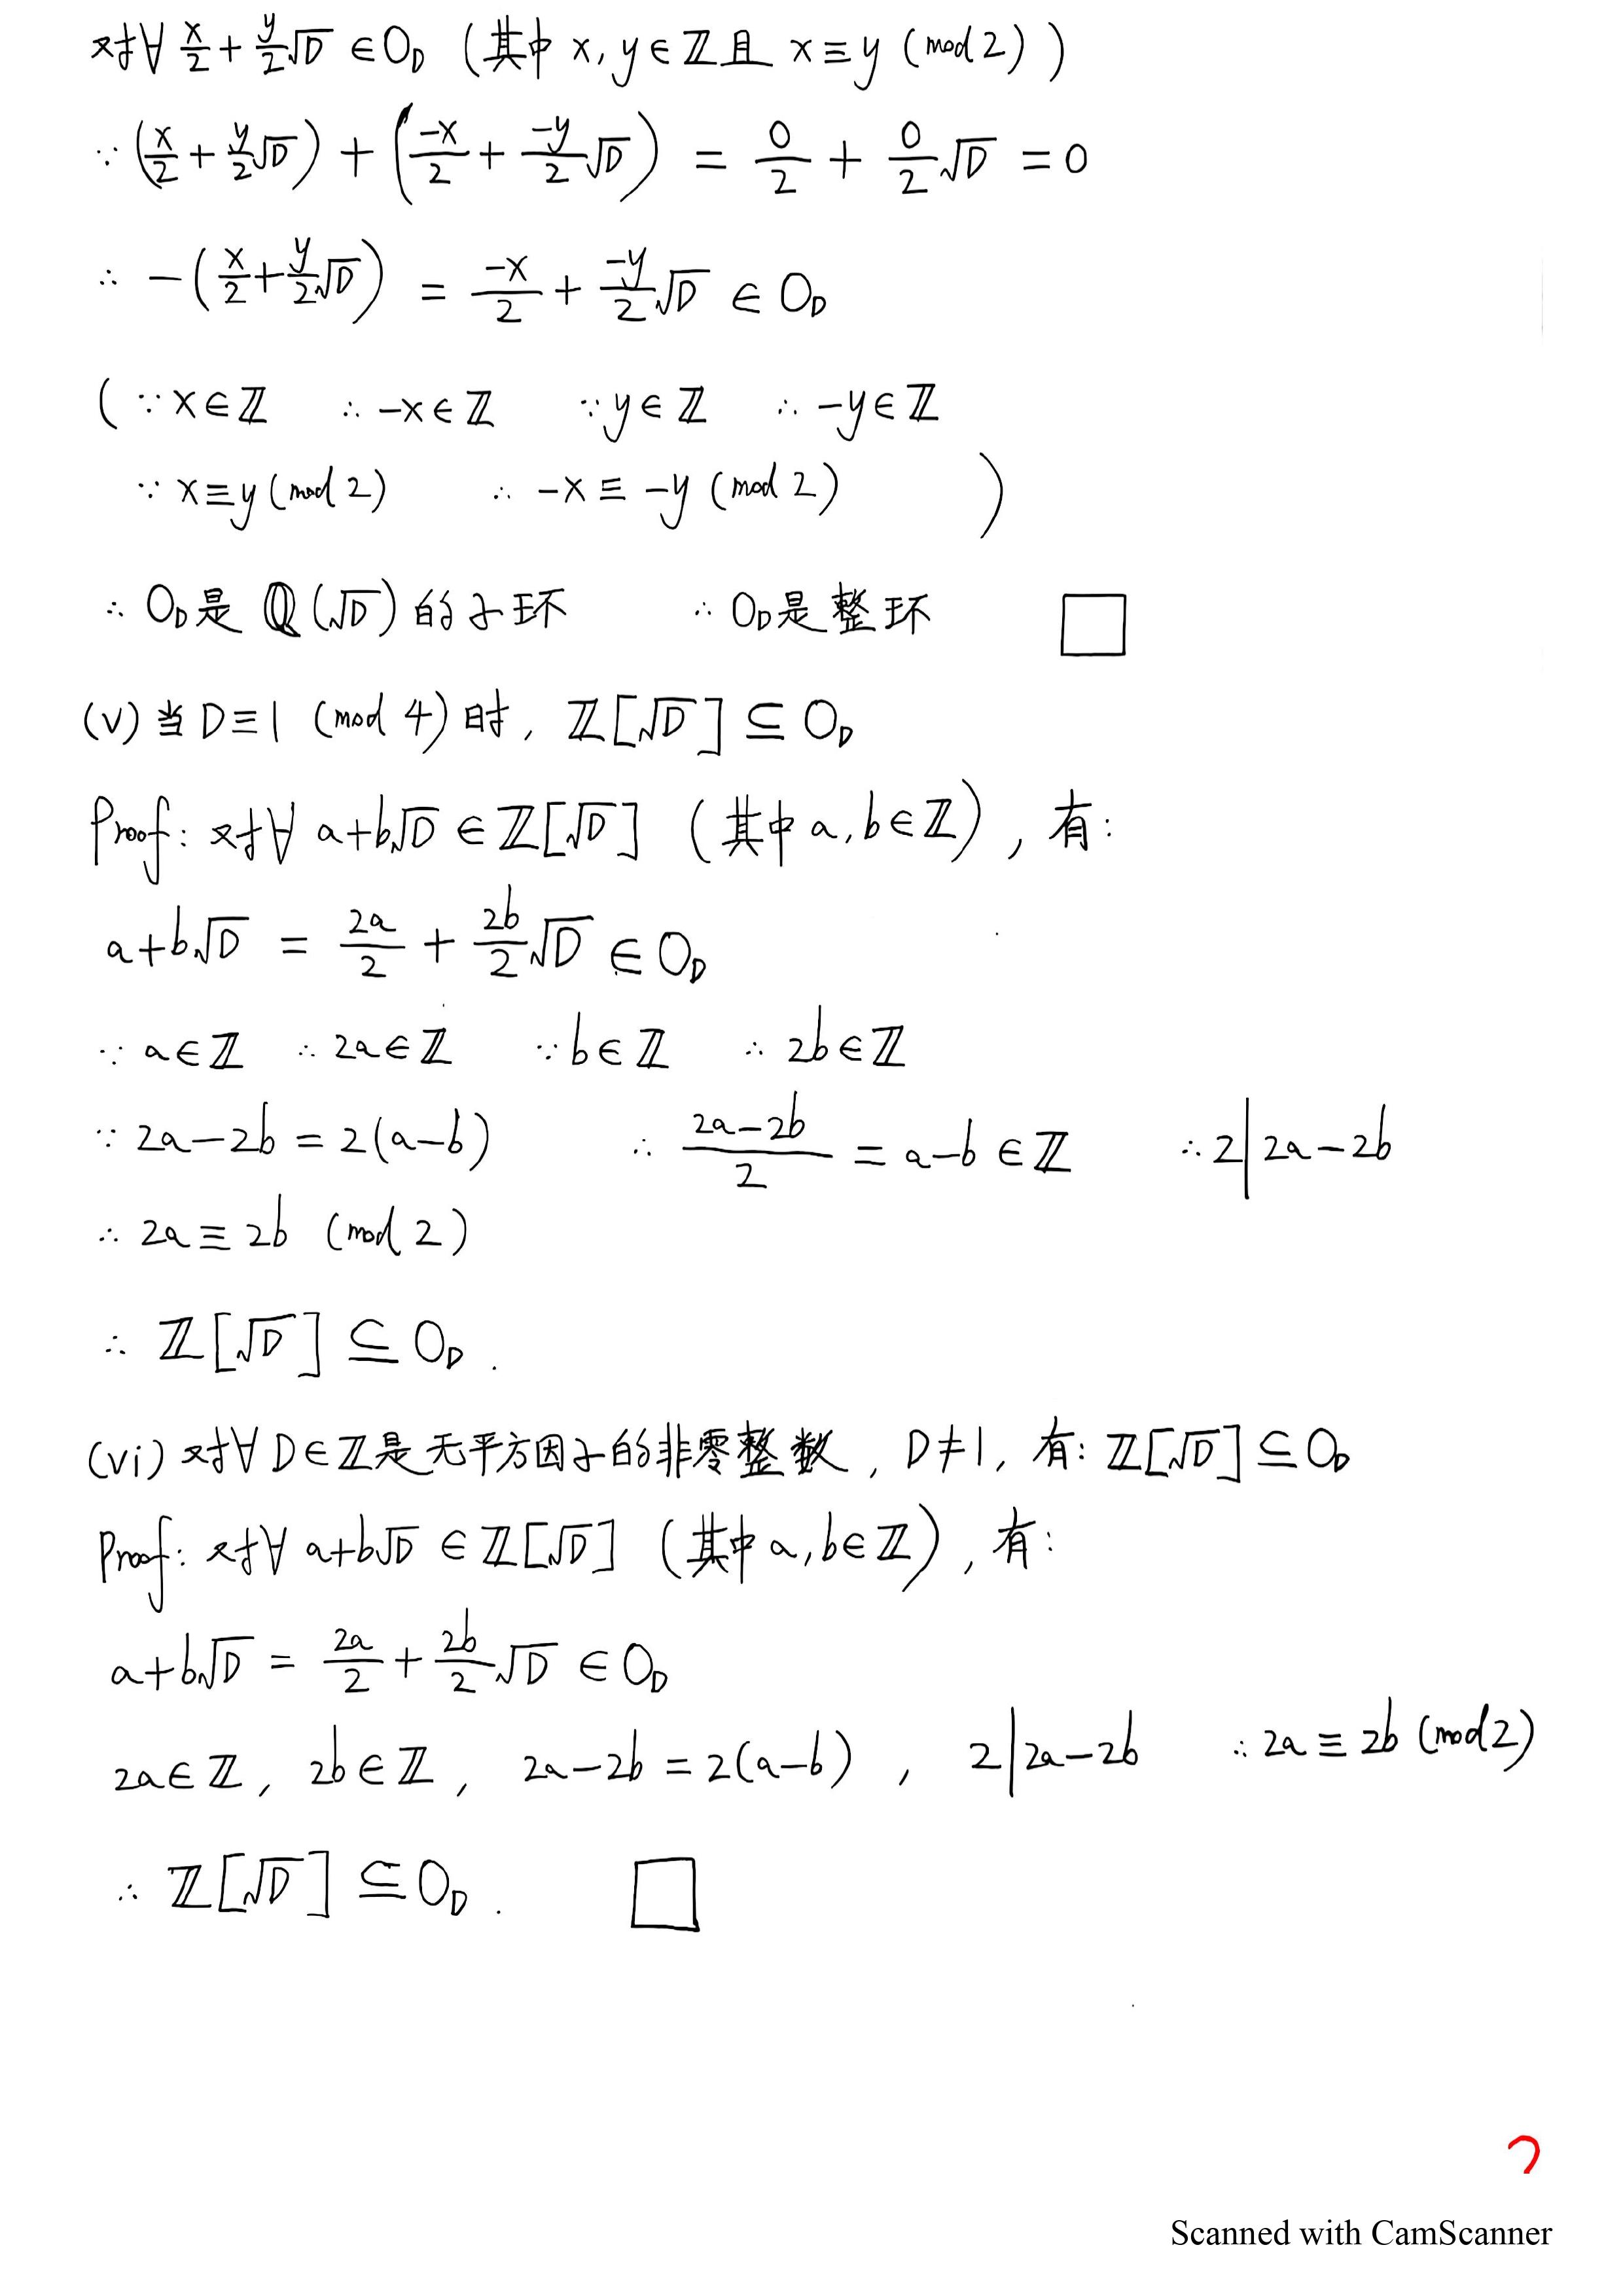 对∀ x/2 + y/2 √D ∈ O_D (其中 x, y ∈ ℤ 且 x ≡ y (mod 2))
∵ (x/2 + y/2 √D) + (-x/2 + -y/2 √D) = 0/2 + 0/2 √D = 0
∴ -(x/2 + y/2 √D) = -x/2 + -y/2 √D ∈ O_D
( ∵ x ∈ ℤ ∴ -x ∈ ℤ ∵ y ∈ ℤ ∴ -y ∈ ℤ
∵ x ≡ y (mod 2) ∴ -x ≡ -y (mod 2) )
∴ O_D是 ℚ(√D) 的子环 ∴ O_D是整环 □
(v) 当 D ≡ 1 (mod 4) 时, ℤ[√D] ⊆ O_D
Proof: 对∀ a+b√D ∈ ℤ[√D] (其中 a, b ∈ ℤ), 有:
a+b√D = 2a/2 + 2b/2 √D ∈ O_D
∵ a ∈ ℤ ∴ 2a ∈ ℤ ∵ b ∈ ℤ ∴ 2b ∈ ℤ
∵ 2a-2b = 2(a-b) ∴ (2a-2b)/2 = a-b ∈ ℤ ∴ 2 | 2a-2b
∴ 2a ≡ 2b (mod 2)
∴ ℤ[√D] ⊆ O_D .
(vi) 对∀ D ∈ ℤ是无平方因子的非零整数, D ≠ 1, 有: ℤ[√D] ⊆ O_D
Proof: 对∀ a+b√D ∈ ℤ[√D] (其中 a, b ∈ ℤ), 有:
a+b√D = 2a/2 + 2b/2 √D ∈ O_D
2a ∈ ℤ, 2b ∈ ℤ, 2a-2b = 2(a-b), 2 | 2a-2b ∴ 2a ≡ 2b (mod 2)
∴ ℤ[√D] ⊆ O_D . □
Scanned with CamScanner